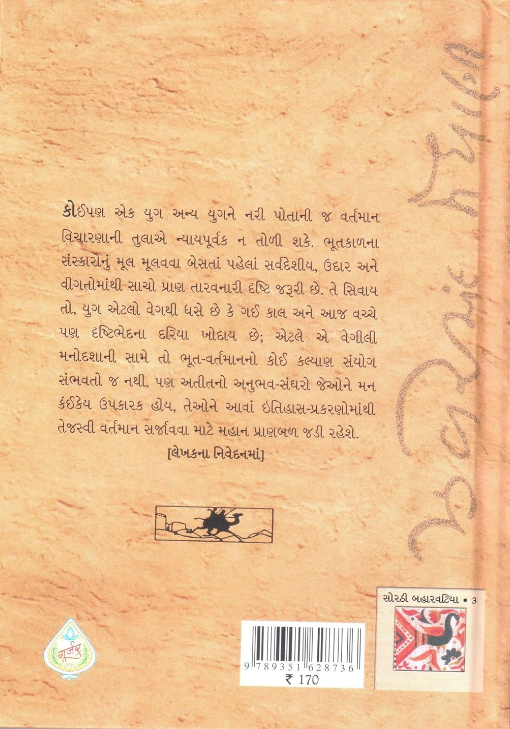 કોઈપણ એક યુગ અન્ય યુગને નરી પોતાની જ વર્તમાન
વિચારણાની તુલાએ ન્યાયપૂર્વક ન તોળી શકે. ભૂતકાળના
સંસ્કારોનું મૂલ મૂલવવા બેસતાં પહેલાં સર્વદેશીય, ઉદાર અને
વીગતોમાંથી સાચો પ્રાણ તારવનારી દૃષ્ટિ જરૂરી છે. તે સિવાય
તો, યુગ એટલો વેગથી ધસે છે કે ગઈ કાલ અને આજ વચ્ચે
પણ દૃષ્ટિભેદના દરિયા ખોદાય છે; એટલે એ વેગીલી
મનોદશાની સામે તો ભૂત-વર્તમાનનો કોઈ કલ્યાણ સંયોગ
સંભવતો જ નથી. પણ અતીતનો અનુભવ-સંઘરો જેઓને મન
કંઈકેય ઉપકારક હોય, તેઓને આવાં ઇતિહાસ-પ્રકરણોમાંથી
તેજસ્વી વર્તમાન સર્જાવવા માટે મહાન પ્રાણબળ જડી રહેશે.
[લેખકના નિવેદનમાં]
ઝવેરચંદ મેઘાણી
સોરઠી બહારવટિયા • 3
ગૂર્જર
9 789351 628736
₹ 170